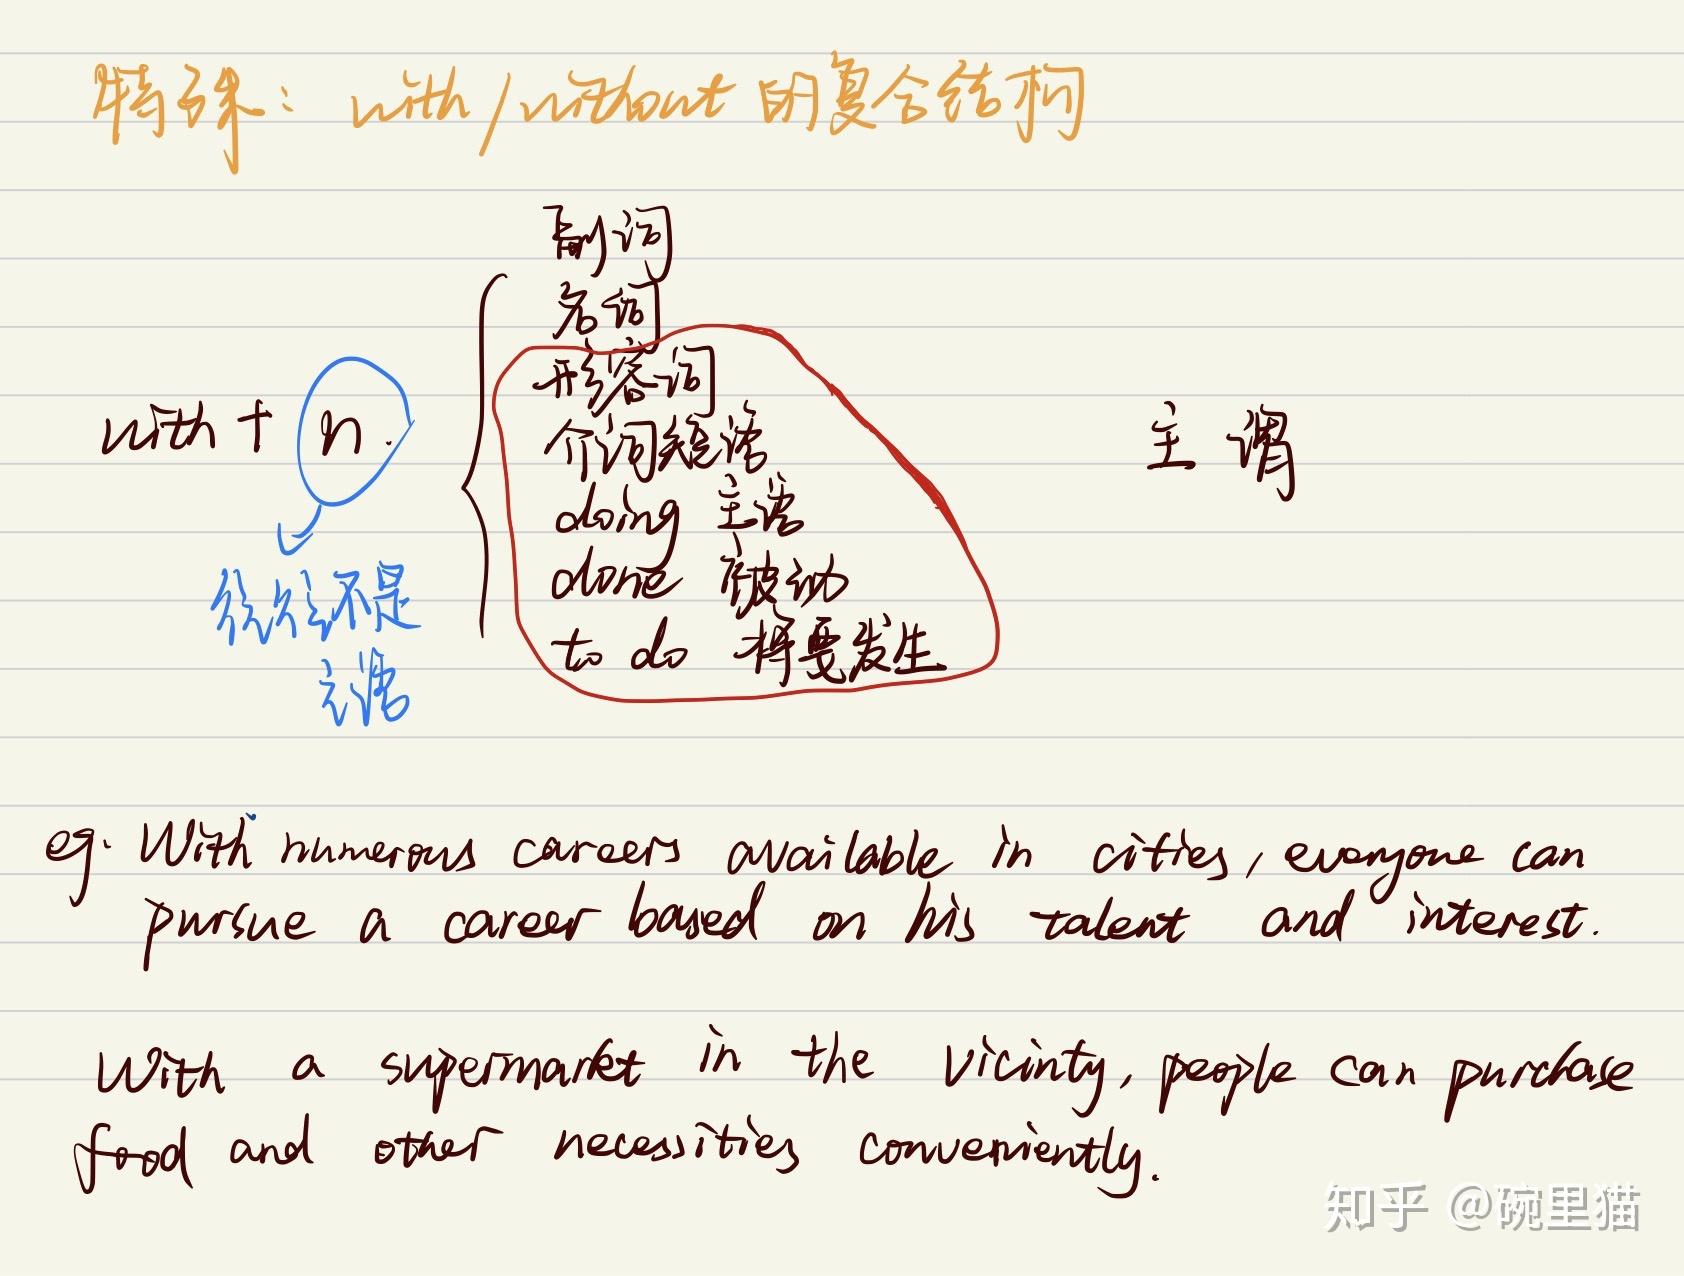 特殊: with/without的复合结构
副词
名词
形容词
介词短语
with + n.
主谓
doing 主语
done 被动
to do 将要发生
往往不是
主语
eg. With numerous careers available in cities, everyone can
pursue a career based on his talent and interest.
With a supermarket in the vicinty, people can purchase
food and other necessities conveniently.
知乎 @碗里猫